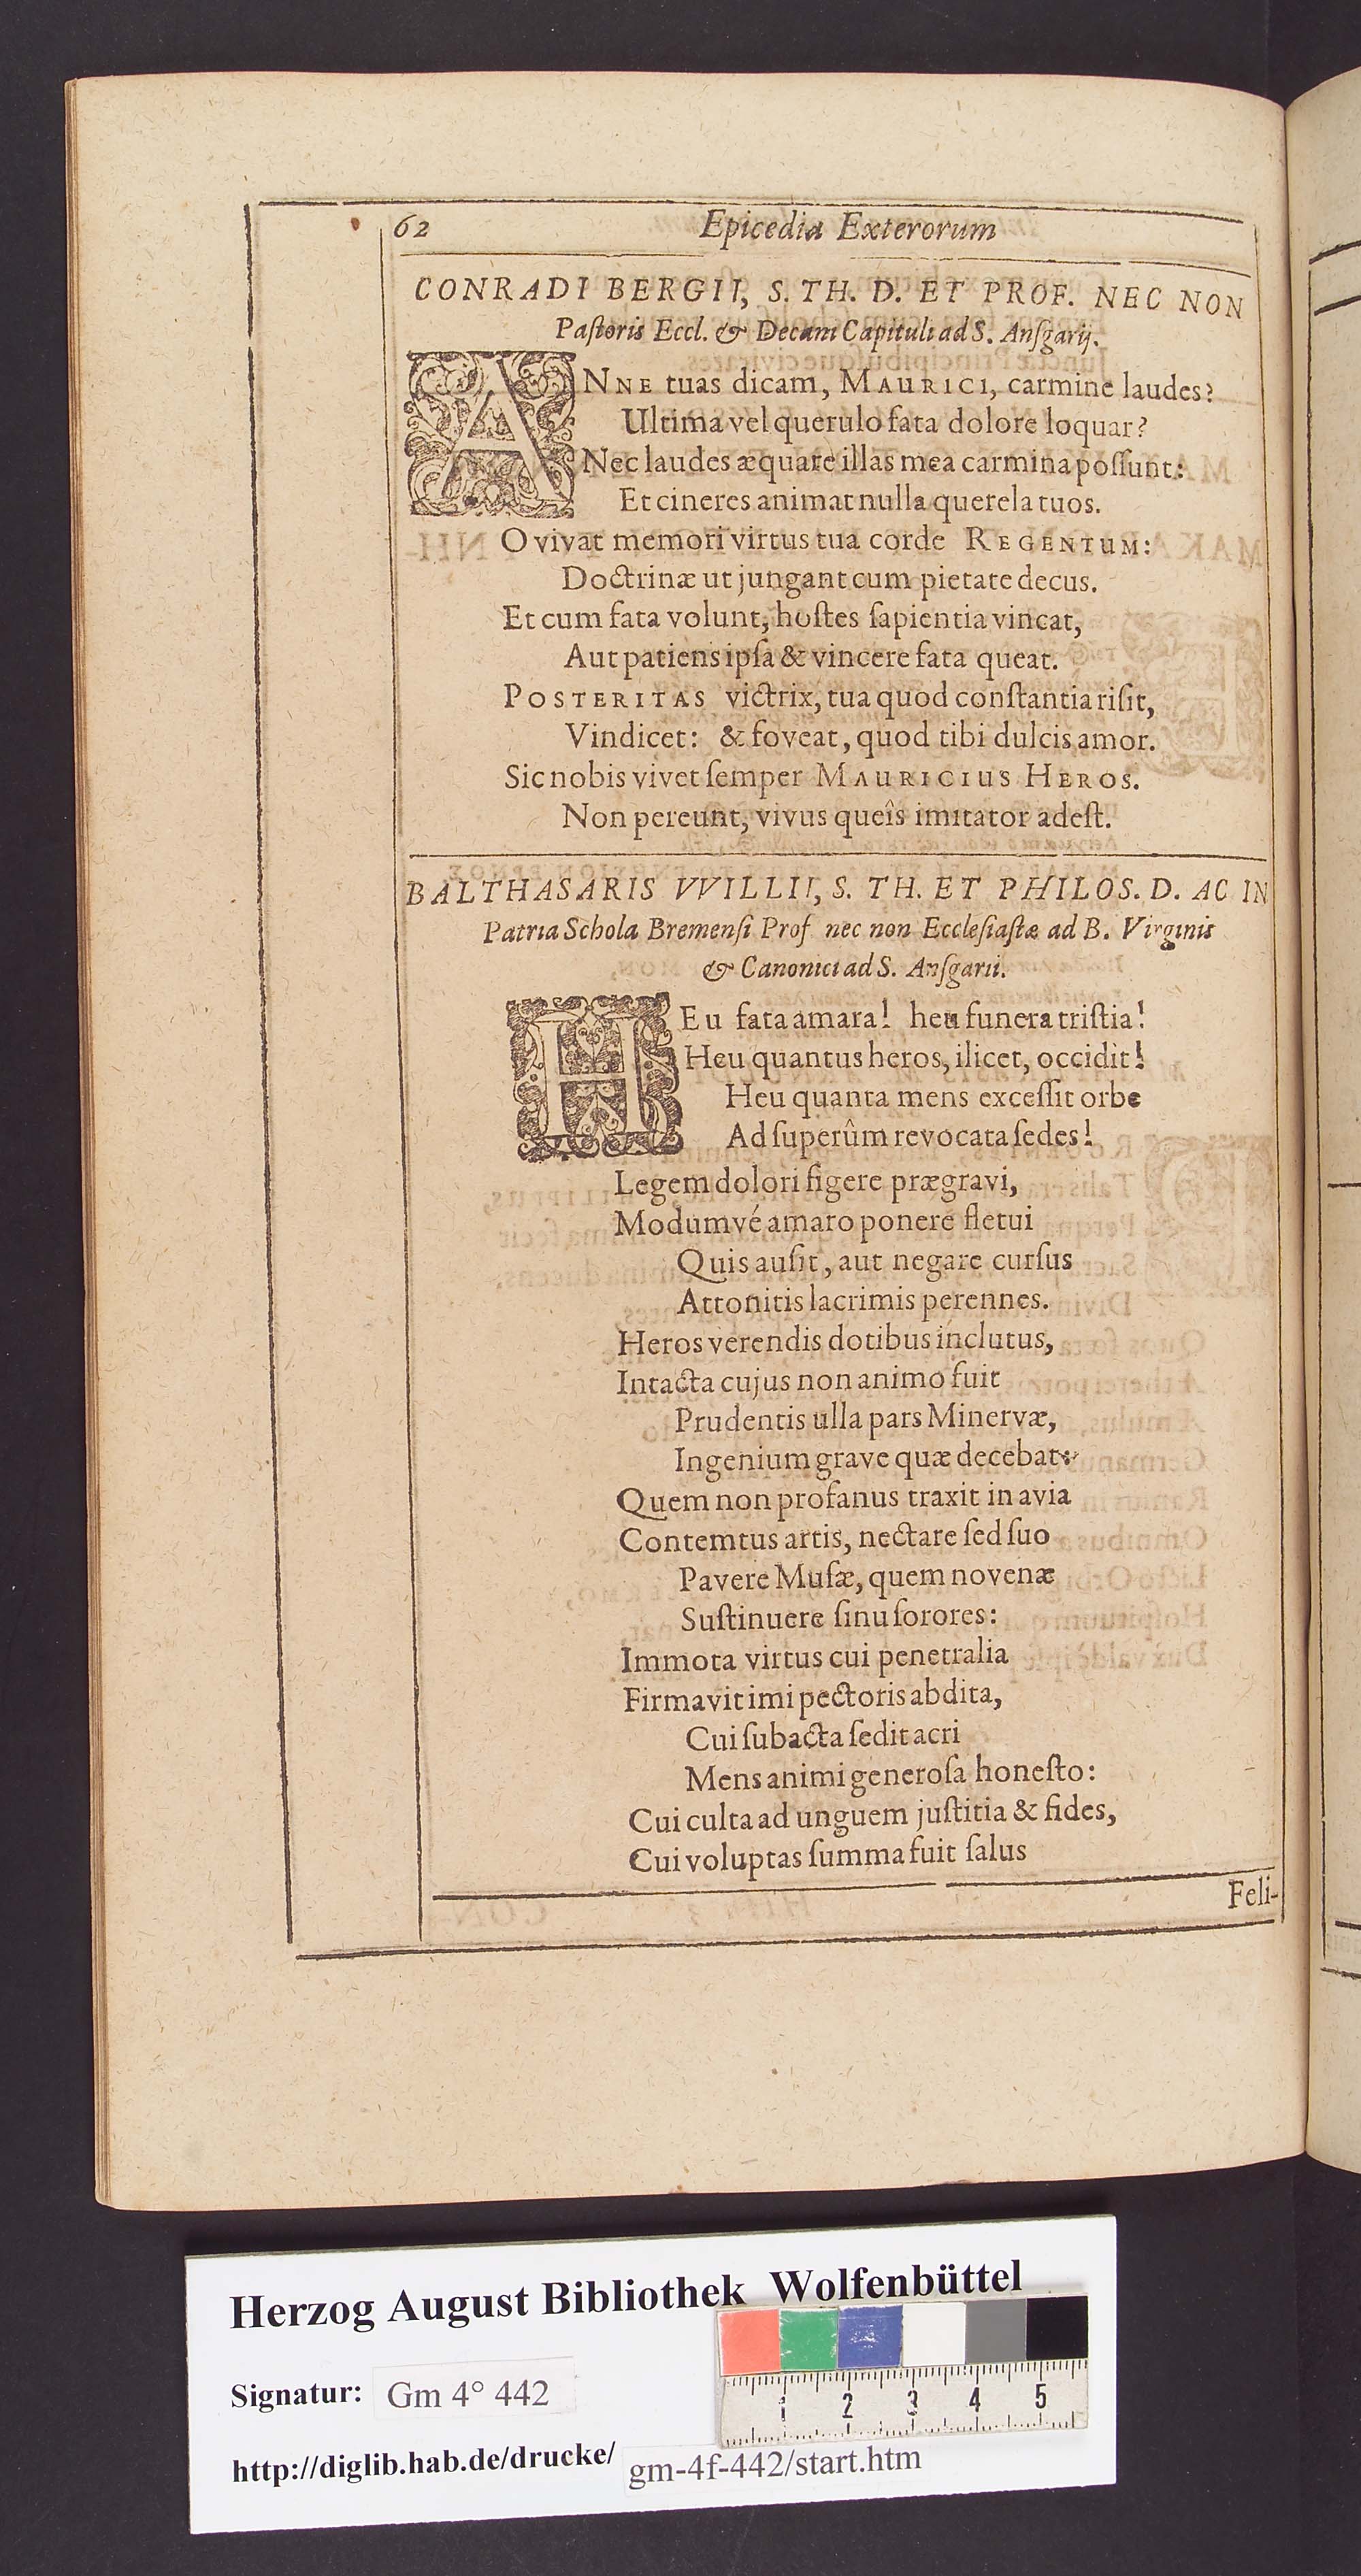 62 Epicedia Exterorum
CONRADI BERGII, S. TH. D. ET PROF. NEC NON
Paſtoris Eccl. & Decani Capituli ad S. Anſgarij.
ANNE tuas dicam, MAURICI, carmine laudes?
Ultima vel querulo fata dolore loquar?
Nec laudes æquare illas mea carmina poſſunt:
Et cineres animat nulla querela tuos.
O vivat memori virtus tua corde REGENTUM:
Doctrinæ ut jungant cum pietate decus.
Et cum fata volunt, hoſtes ſapientia vincat,
Aut patiens ipſa & vincere fata queat.
POSTERITAS victrix, tua quod conſtantia riſit,
Vindicet: & foveat, quod tibi dulcis amor.
Sic nobis vivet ſemper MAURICIUS HEROS.
Non pereunt, vivus queîs imitator adeſt.
BALTHASARIS VVILLII, S. TH. ET PHILOS. D. AC IN
Patria Schola Bremenſi Prof nec non Eccleſiaſtæ ad B. Virginis
& Canonici ad S. Anſgarii.
HEu fata amara! heu funera triſtia!
Heu quantus heros, ilicet, occidit!
Heu quanta mens exceſſit orbe
Ad ſuperûm revocata ſedes!
Legem dolori figere prægravi,
Modumvé amaro ponere fletui
Quis auſit, aut negare curſus
Attonitis lacrimis perennes.
Heros verendis dotibus inclutus,
Intacta cujus non animo fuit
Prudentis ulla pars Minervæ,
Ingenium grave quæ decebat:
Quem non profanus traxit in avia
Contemtus artis, nectare ſed ſuo
Pavere Muſæ, quem novenæ
Suſtinuere ſinu ſorores:
Immota virtus cui penetralia
Firmavit imi pectoris abdita,
Cui ſubacta ſedit acri
Mens animi generoſa honeſto:
Cui culta ad unguem juſtitia & fides,
Cui voluptas ſumma fuit ſalus
Feli-
Herzog August Bibliothek Wolfenbüttel
Signatur: Gm 4° 442
1 2 3 4 5
http://diglib.hab.de/drucke/ gm-4f-442/start.htm